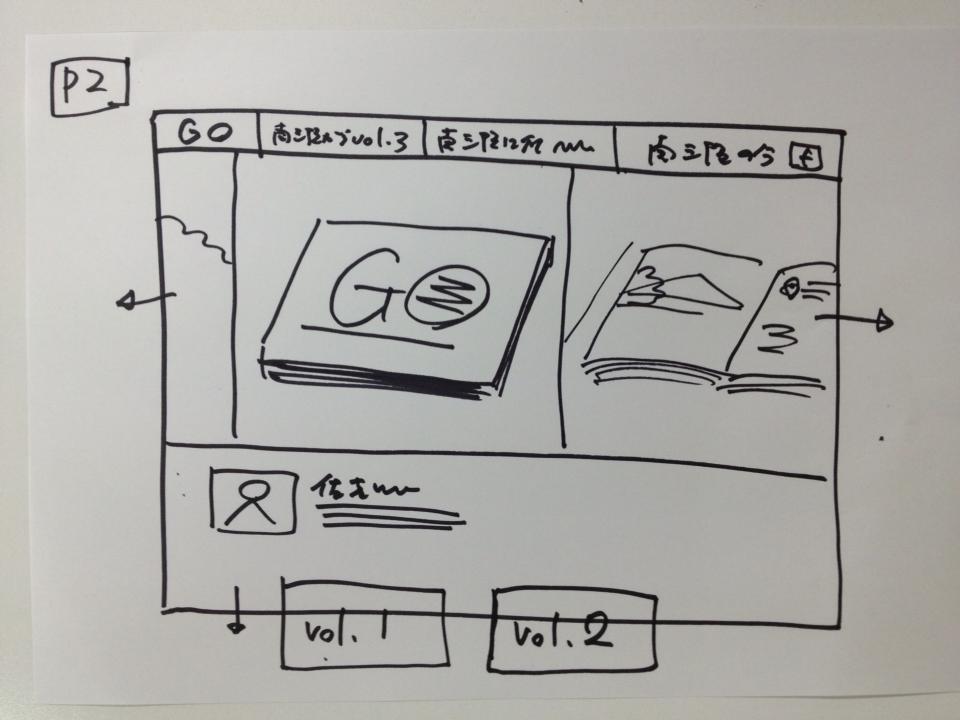 P2
GO
南三陸 vol.3
南三陸
南三陸の今 f
GO
vol. 1
vol. 2